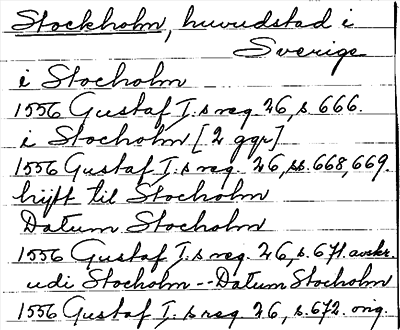 Stockholm, huvudstad i
Sverige
i Stocholm
1556 Gustaf I.s reg. 26, s. 666.
i Stocholm [2 ggr]
1556 Gustaf I.s reg. 26, ss. 668, 669.
hijtt til Stocholm
Datum Stocholm
1556 Gustaf I.s reg. 26, s. 671. avskr.
udi Stocholm -- Datum Stocholm
1556 Gustaf I.s reg. 26, s. 672. orig.